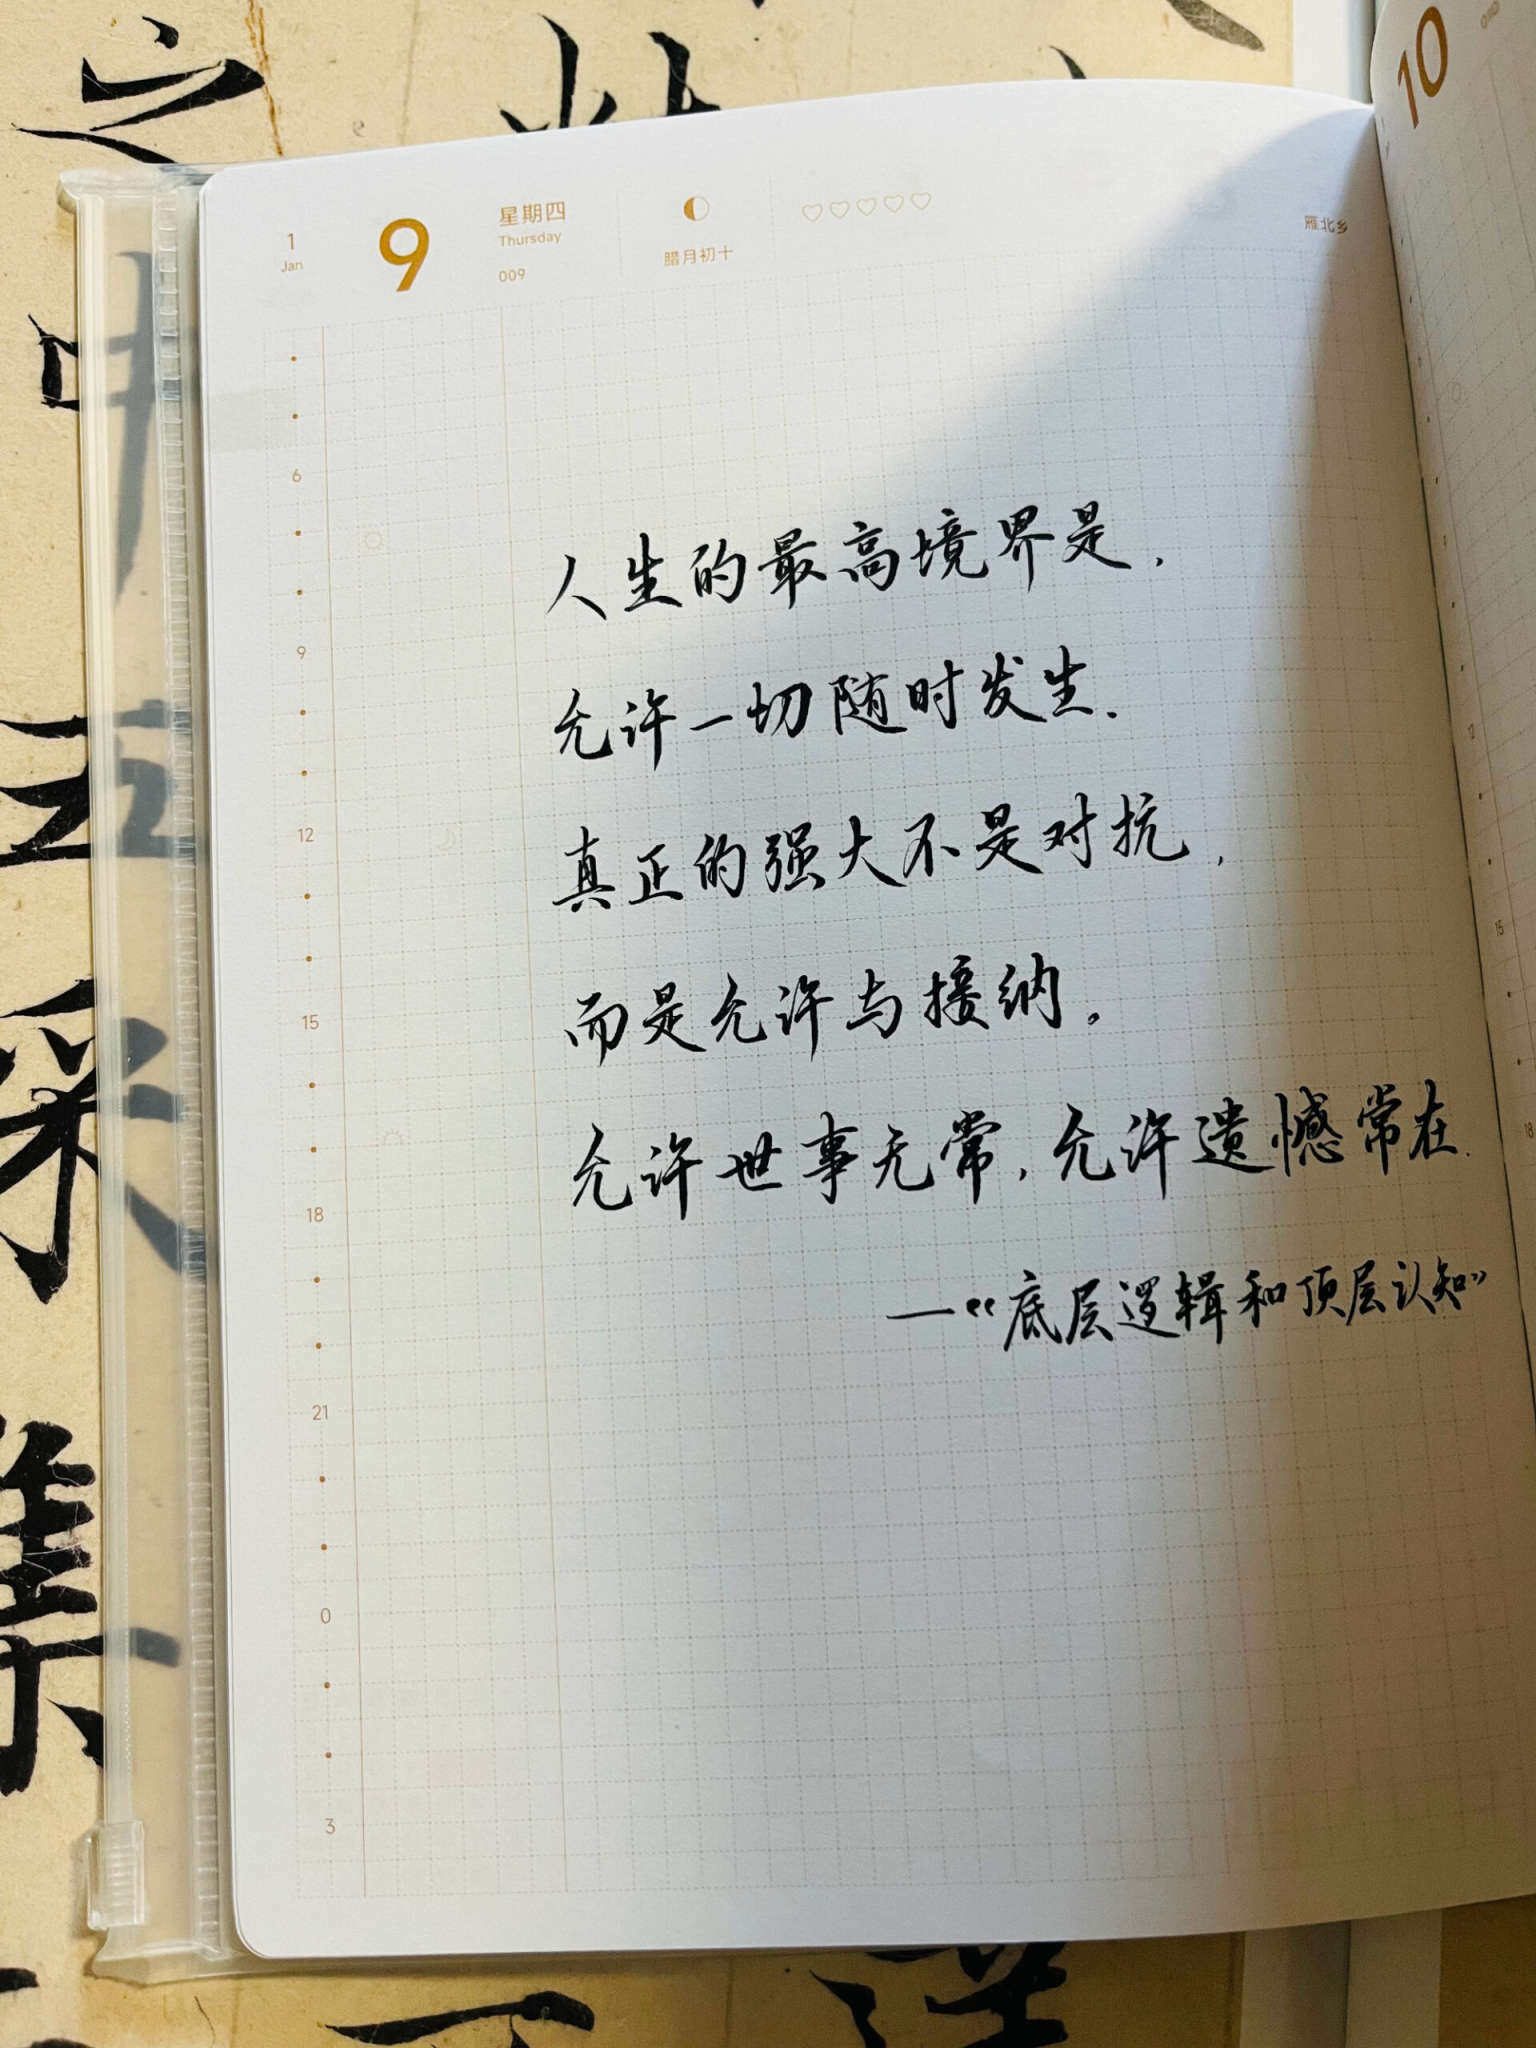 1
Jan
9
星期四
Thursday
009
腊月初十
雁北乡
10
6
9
12
15
18
21
0
3
人生的最高境界是,
允许一切随时发生.
真正的强大不是对抗,
而是允许与接纳。
允许世事无常,允许遗憾常在.
—“底层逻辑和顶层认知”
12
15
18
之
中
五
采
集